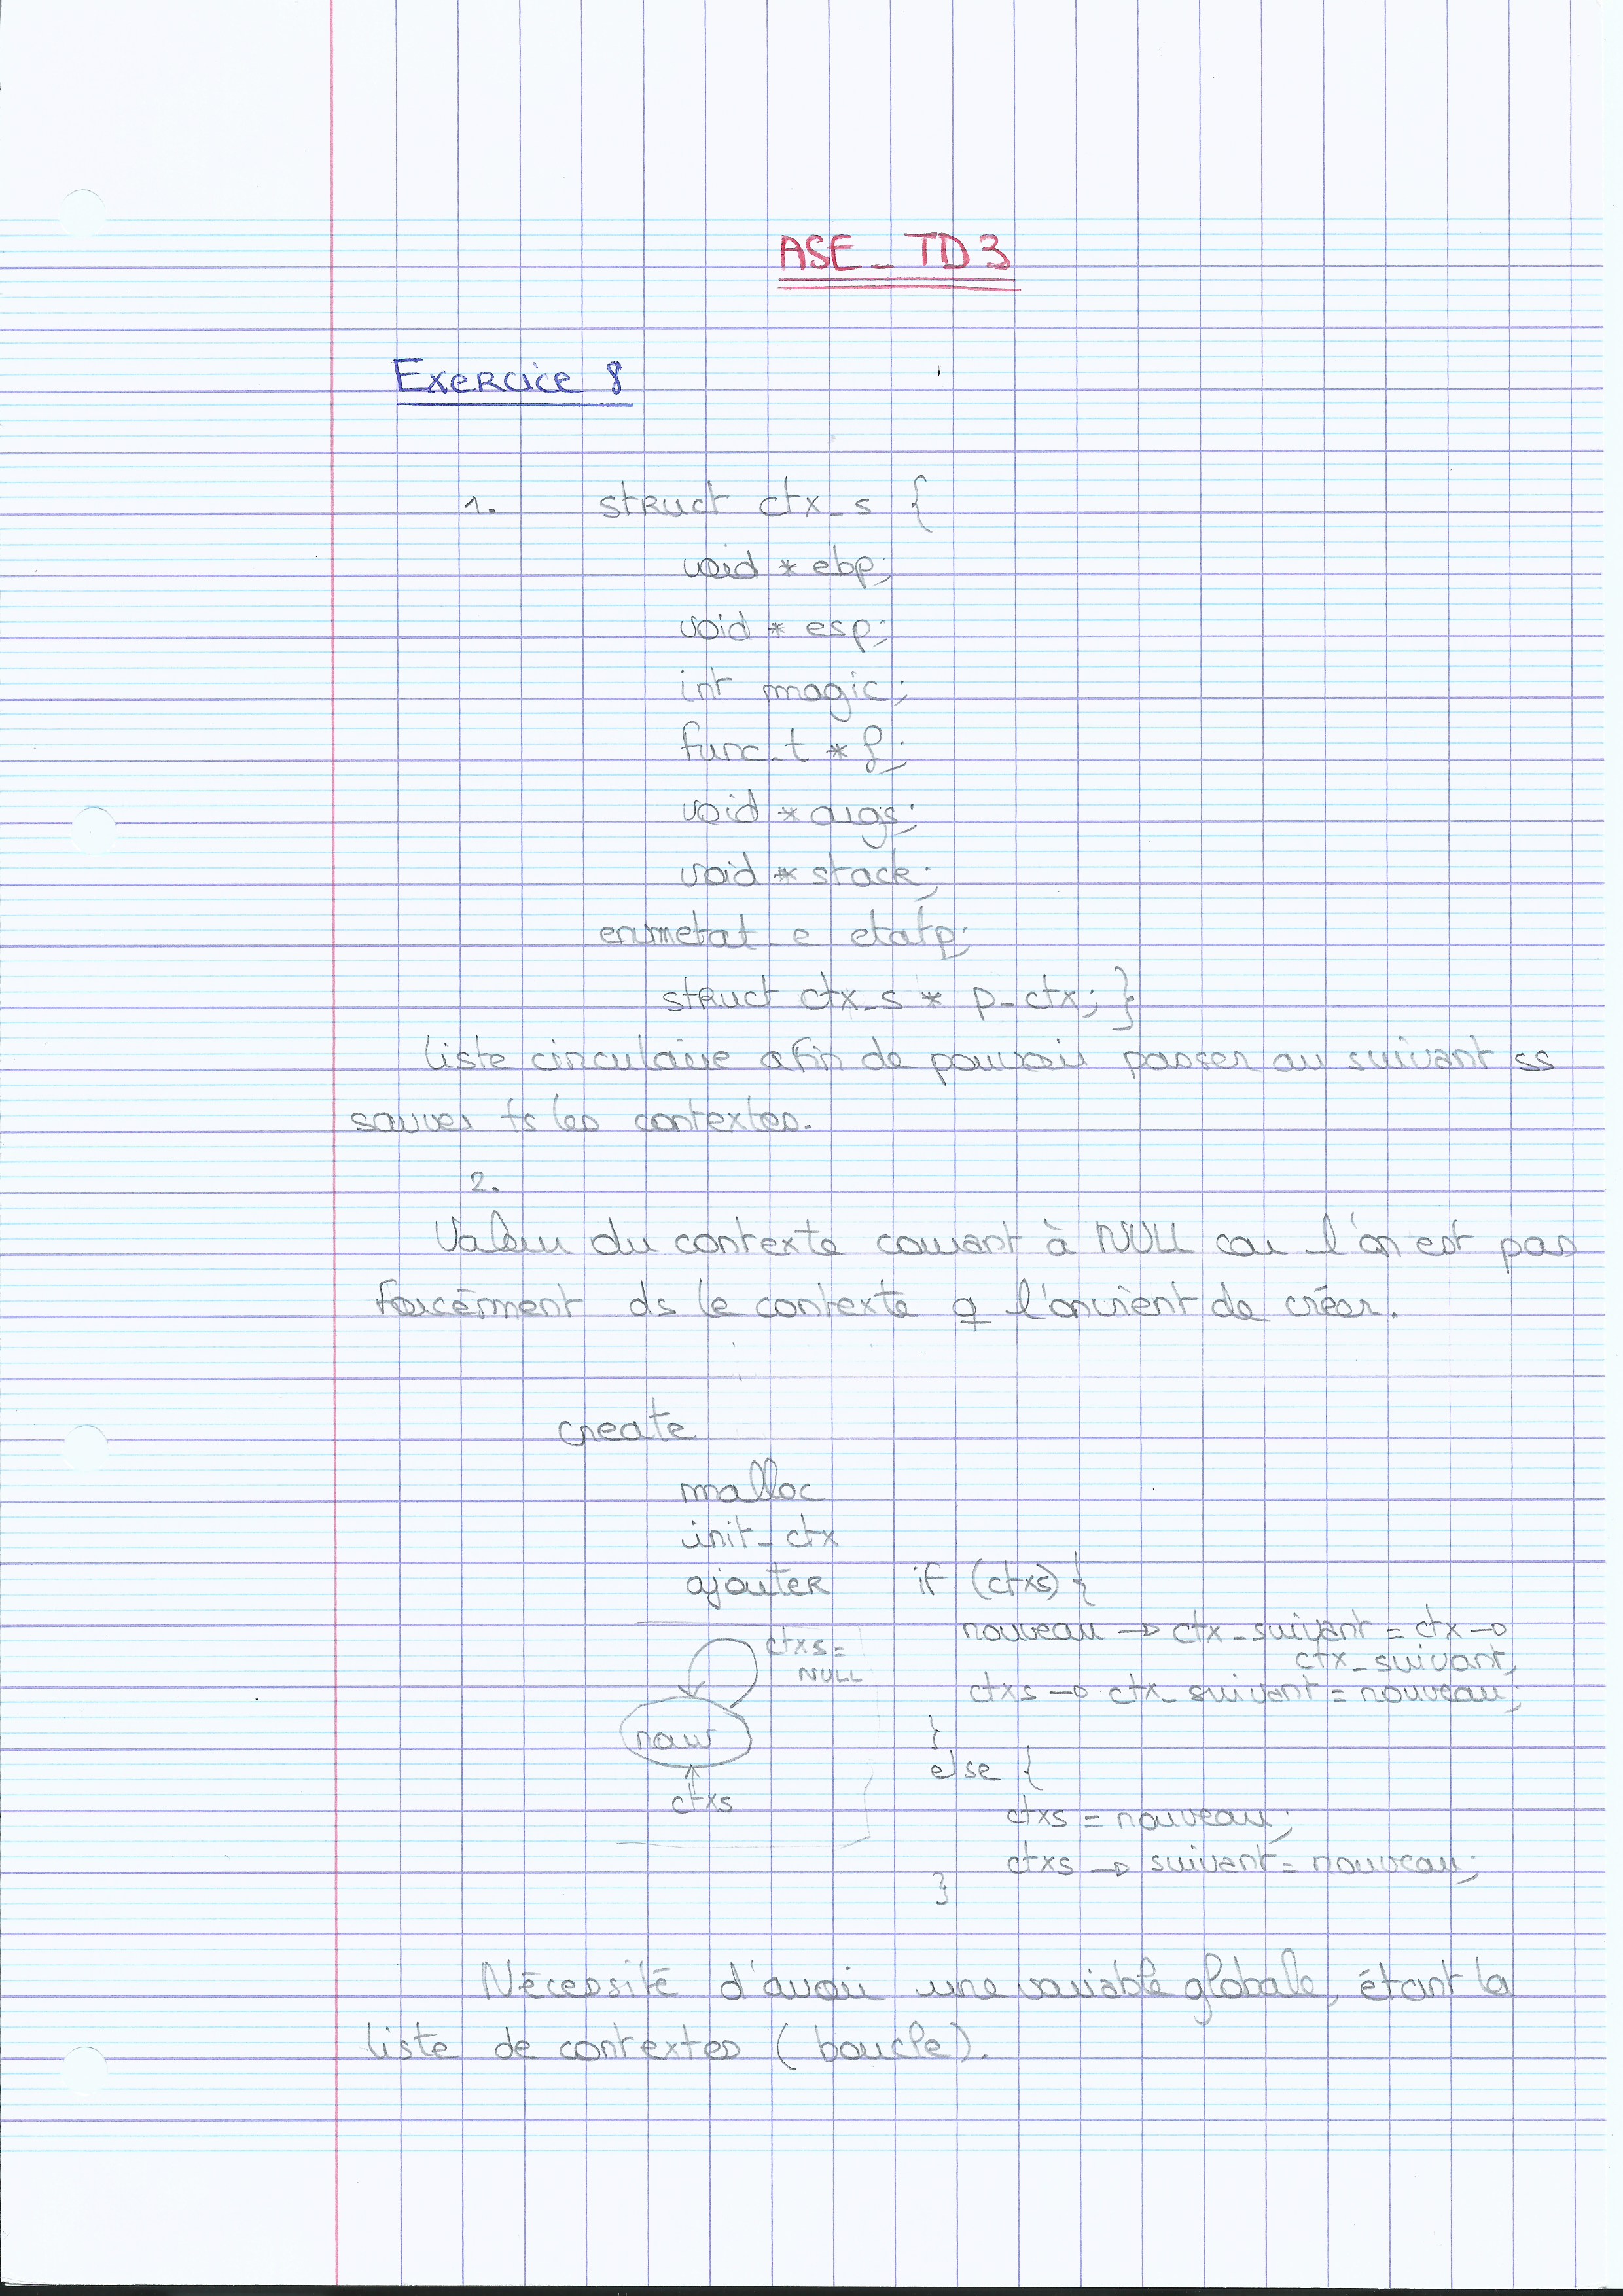 ASE_TD3
Exercice 8
1. struct ctx_s {
void * ebp;
void * esp;
int magic;
func_t * f;
void * args;
void * stack;
enum etat_e etatp;
struct ctx_s * p_ctx; }
liste circulaire afin de pouvoir passer au suivant ss
sauver ts les contextes.
2.
Valeur du contexte courant à NULL car l'on est pas
forcément ds le contexte q l'on vient de créer.
create
malloc
init_ctx
ajouter if (ctxs) {
nouveau → ctx_suivant = ctx →
ctx_suivant;
ctxs → ctx_suivant = nouveau;
}
else {
ctxs = nouveau;
ctxs → suivant = nouveau;
}
ctxs =
NULL
nouv
ctxs
Nécessité d'avoir une variable globale, étant la
liste de contextes (boucle).